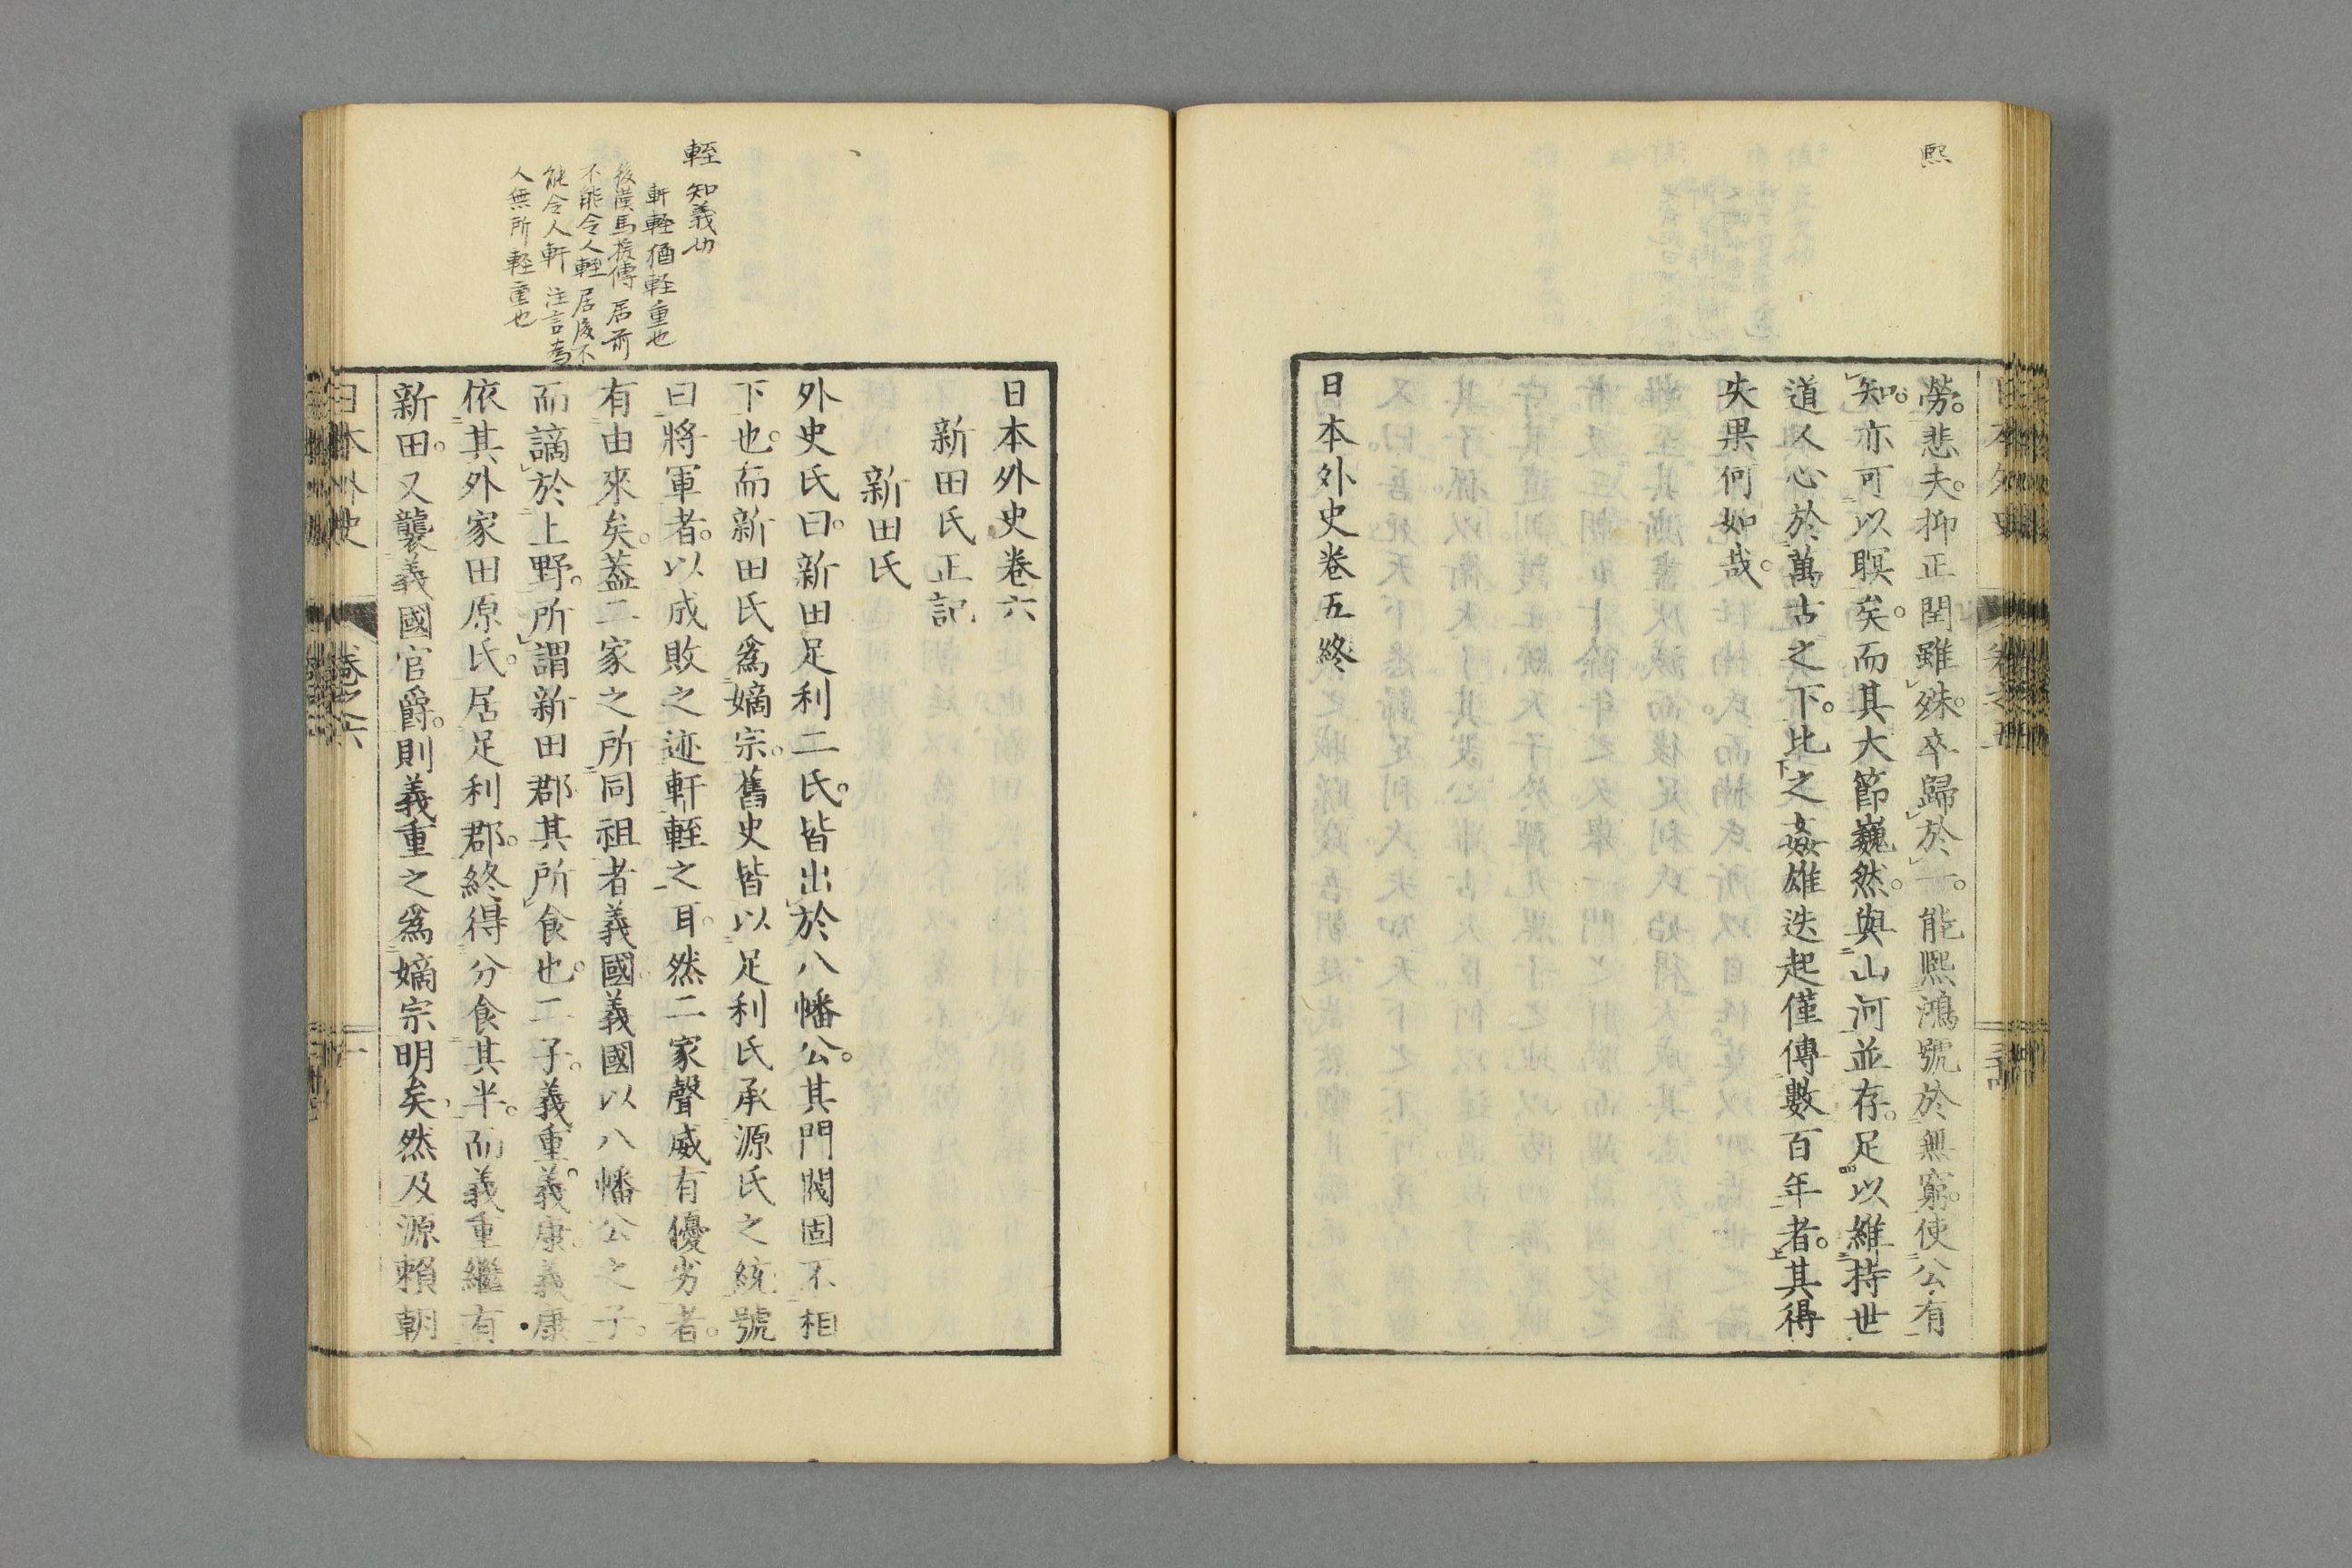 熈
勞。悲夫。抑正閏雖殊。卒歸於一。能熈鴻號於無窮。使公有
知。亦可以瞑矣。而其大節巍然。與山河並存。足以維持世
道人心於萬古之下。比之姦雄迭起僅傳數百年者。其得
失果何如哉。
日本外史卷五終
輊 知義切
軒輊猶軽重也
後漢馬援傳 居前
不能令人輊 居後不
能令人軒 注言為
人無所軽重也
日本外史卷六
新田氏正記
新田氏
外史氏曰。新田足利二氏。皆出於八幡公。其門閥固不相
下也。而新田氏爲嫡宗。舊史皆以足利氏承源氏之統號
曰將軍者。以成敗之迹軒輊之耳。然二家聲威有優劣者。
有由來矣。蓋二家之所同祖者義國。義國以八幡公之子。
而謫於上野。所謂新田郡其所食也。二子。義重。義康。義康
依其外家田原氏。居足利郡。終得分食其半。而義重繼有
新田。又襲義國官爵。則義重之爲嫡宗明矣。然及源賴朝
日本外史
卷之六
一